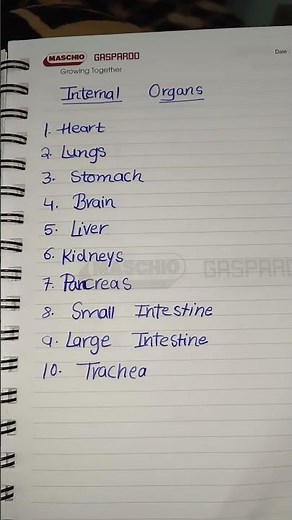 MASCHIO GASPARDO
Date
Growing Together
Internal Organs
1. Heart
2. Lungs
3. Stomach
4. Brain
5. Liver
6. Kidneys
MASCHIO GASPARDO
7. Pancreas
8. Small Intestine
9. Large Intestine
10. Trachea